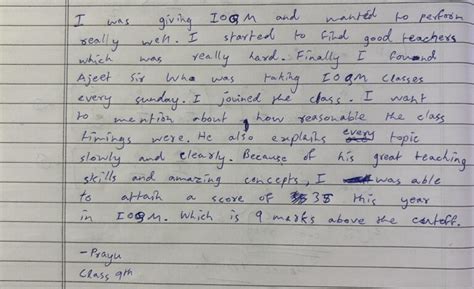 I was giving IOQM and wanted to perform
really well. I started to find good teachers
which was really hard. Finally I found
Ajeet Sir who was taking IOQM classes
every sunday. I joined the class. I want
to mention about, how reasonable the class
timings were. He also explains every topic
slowly and clearly. Because of his great teaching
skills and amazing concepts, I was able
to attain a score of 35 this year
in IOQM. Which is 9 marks above the cutoff.
-Prayu
Class 9th